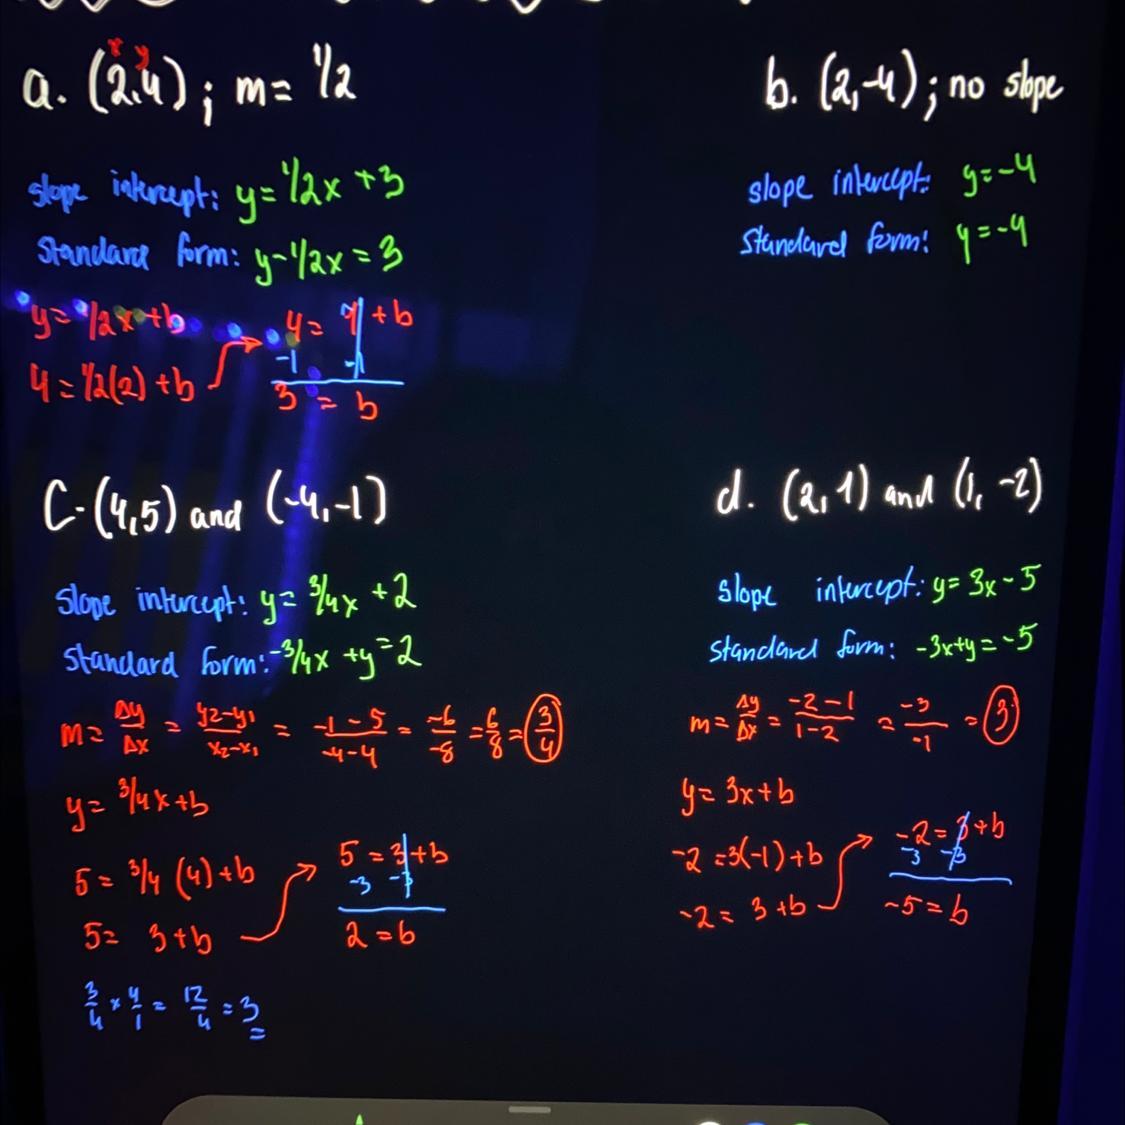 x y
a. (2,4); m = 1/2
slope intercept: y = 1/2x + 3
Standard form: y - 1/2x = 3
y = 1/2x + b
4 = 1/2(2) + b
4 = 1 + b
-1 -1
3 = b
b. (2,-4); no slope
slope intercept: y = -4
Standard form: y = -4
C. (4,5) and (-4,-1)
Slope intercept: y = 3/4x + 2
Standard form: -3/4x + y = 2
m = Δy/Δx = y2-y1/x2-x1 = -1-5/-4-4 = -6/-8 = 6/8 = 3/4
y = 3/4x + b
5 = 3/4 (4) + b
5 = 3 + b
5 = 3 + b
-3 -3
2 = b
3/4 × 4/1 = 12/4 = 3
d. (2,1) and (1,-2)
Slope intercept: y = 3x - 5
Standard form: -3x+y = -5
m = Δy/Δx = -2-1/1-2 = -3/-1 = 3
y = 3x + b
-2 = 3(-1) + b
-2 = 3 + b
-2 = 3 + b
-3 -3
-5 = b